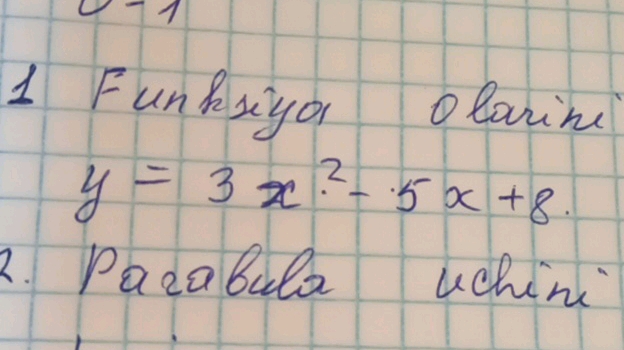 1 Funksiya olarini
y = 3x² - 5x + 8.
2. Parabula uchini